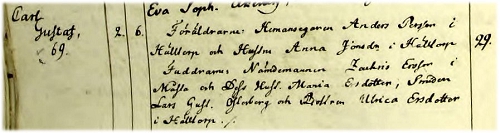 Eva Soph.
Carl Gustaf, 69.
2. 6. Föräldrarne: Hemansegaren Anders Persson i
Hälltorp och Hustru Anna Jonsdr i Hälltorp 29.
Faddrarne: Nämdemannen Zachris Ersson i
och Dess Hust. Maria Ersdotter, Smeden
Lars Gust. Öfverberg och Pigan Ulrica Ersdotter
i Hälltorp.